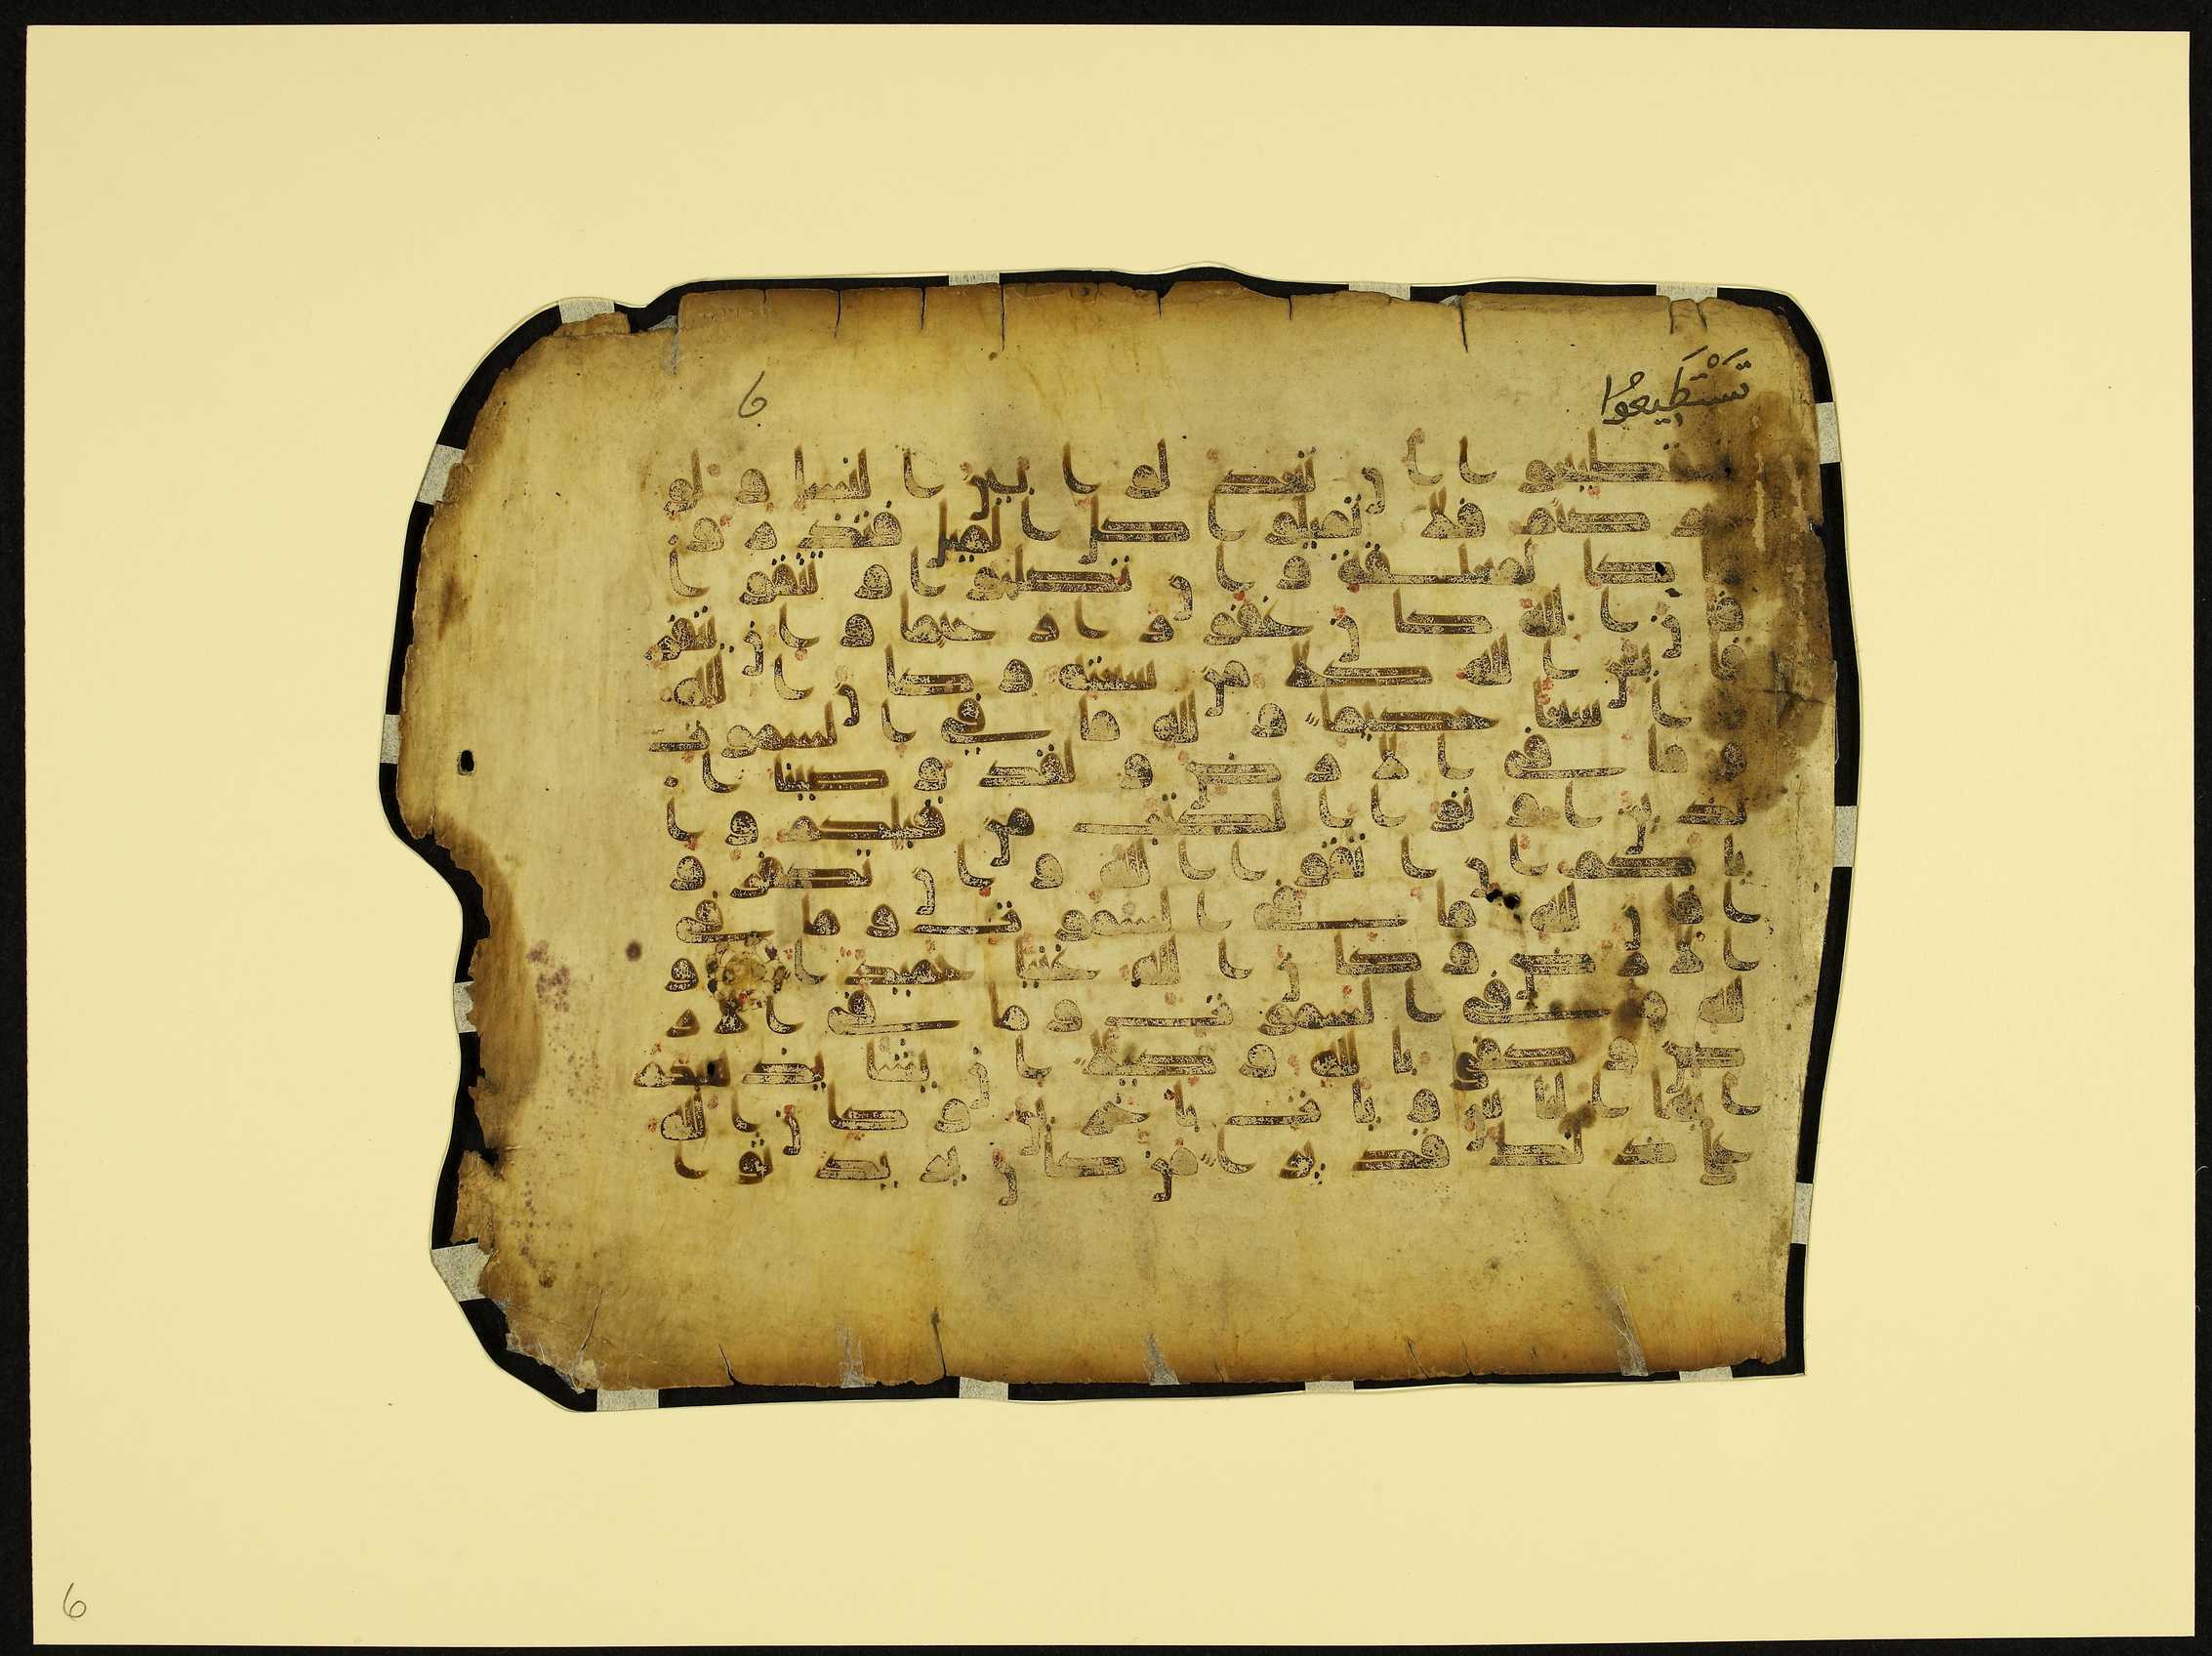 تستطيعوا
6
تستطيعوا ان تعدلوا بين النسا ولو
حرصتم فلا تميلوا كل الميل فتذرو
ها كالمعلقة وان تصلحوا وتتقوا
فان الله كان غفورا رحيما وان يتفر
قا يغن الله كلا من سعته وكان الله
واسعا حكيما ولله ما في السموت
وما في الارض ولقد وصينا ا
لذين اوتوا الكتب من قبلكم وا
ياكم ان اتقوا الله وان تكفرو
ا فان لله ما في السموت وما في
الارض وكان الله غنيا حميدا و
لله ما في السموت وما في الار
ض وكفى بالله وكيلا ان يشا يذهبكم
ايها الناس ويات باخرين وكان الله
على ذلك قديرا من كان يريد ثوا
6